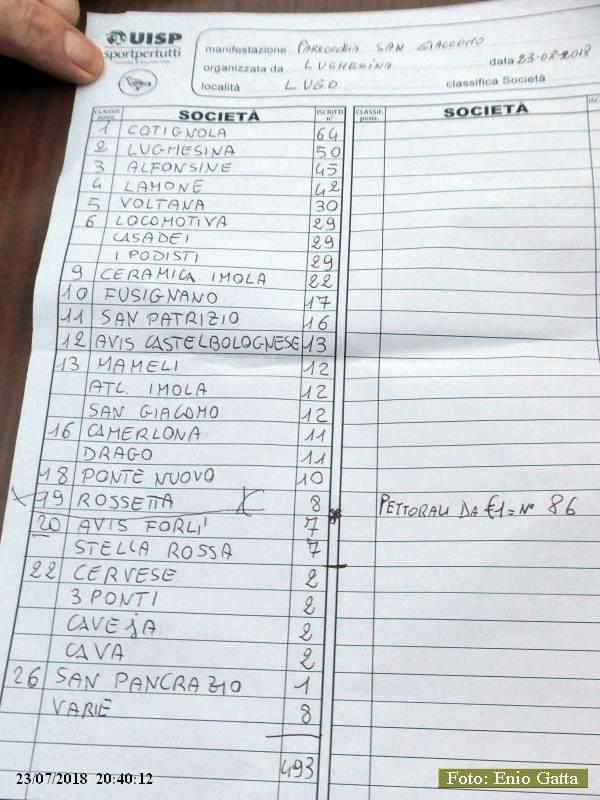 UISP
sportpertutti
manifestazione PARROCCHIA SAN GIACCOMO
organizzata da LUGHESINA data 23-08-2018
località LUGO classifica Società
CLASSIF. posiz. SOCIETÀ ISCRITTI n° CLASSIF. posiz. SOCIETÀ
1 COTIGNOLA 64
2 LUGHESINA 50
3 ALFONSINE 45
4 LAMONE 42
5 VOLTANA 30
6 LOCOMOTIVA 29
CASADEI 29
I PODISTI 29
9 CERAMICA IMOLA 22
10 FUSIGNANO 17
11 SAN PATRIZIO 16
12 AVIS CASTELBOLOGNESE 13
13 MAMELI 12
ATL. IMOLA 12
SAN GIACOMO 12
16 CAMERLONA 11
DRAGO 11
18 PONTE NUOVO 10
19 ROSSETTA 8 PETTORALI DA €1 = N° 86
20 AVIS FORLI' 7
STELLA ROSSA 7
22 CERVESE 2
3 PONTI 2
CAVEJA 2
CAVA 2
26 SAN PANCRAZIO 1
VARIE 8
493
23/07/2018 20:40:12
Foto: Enio Gatta